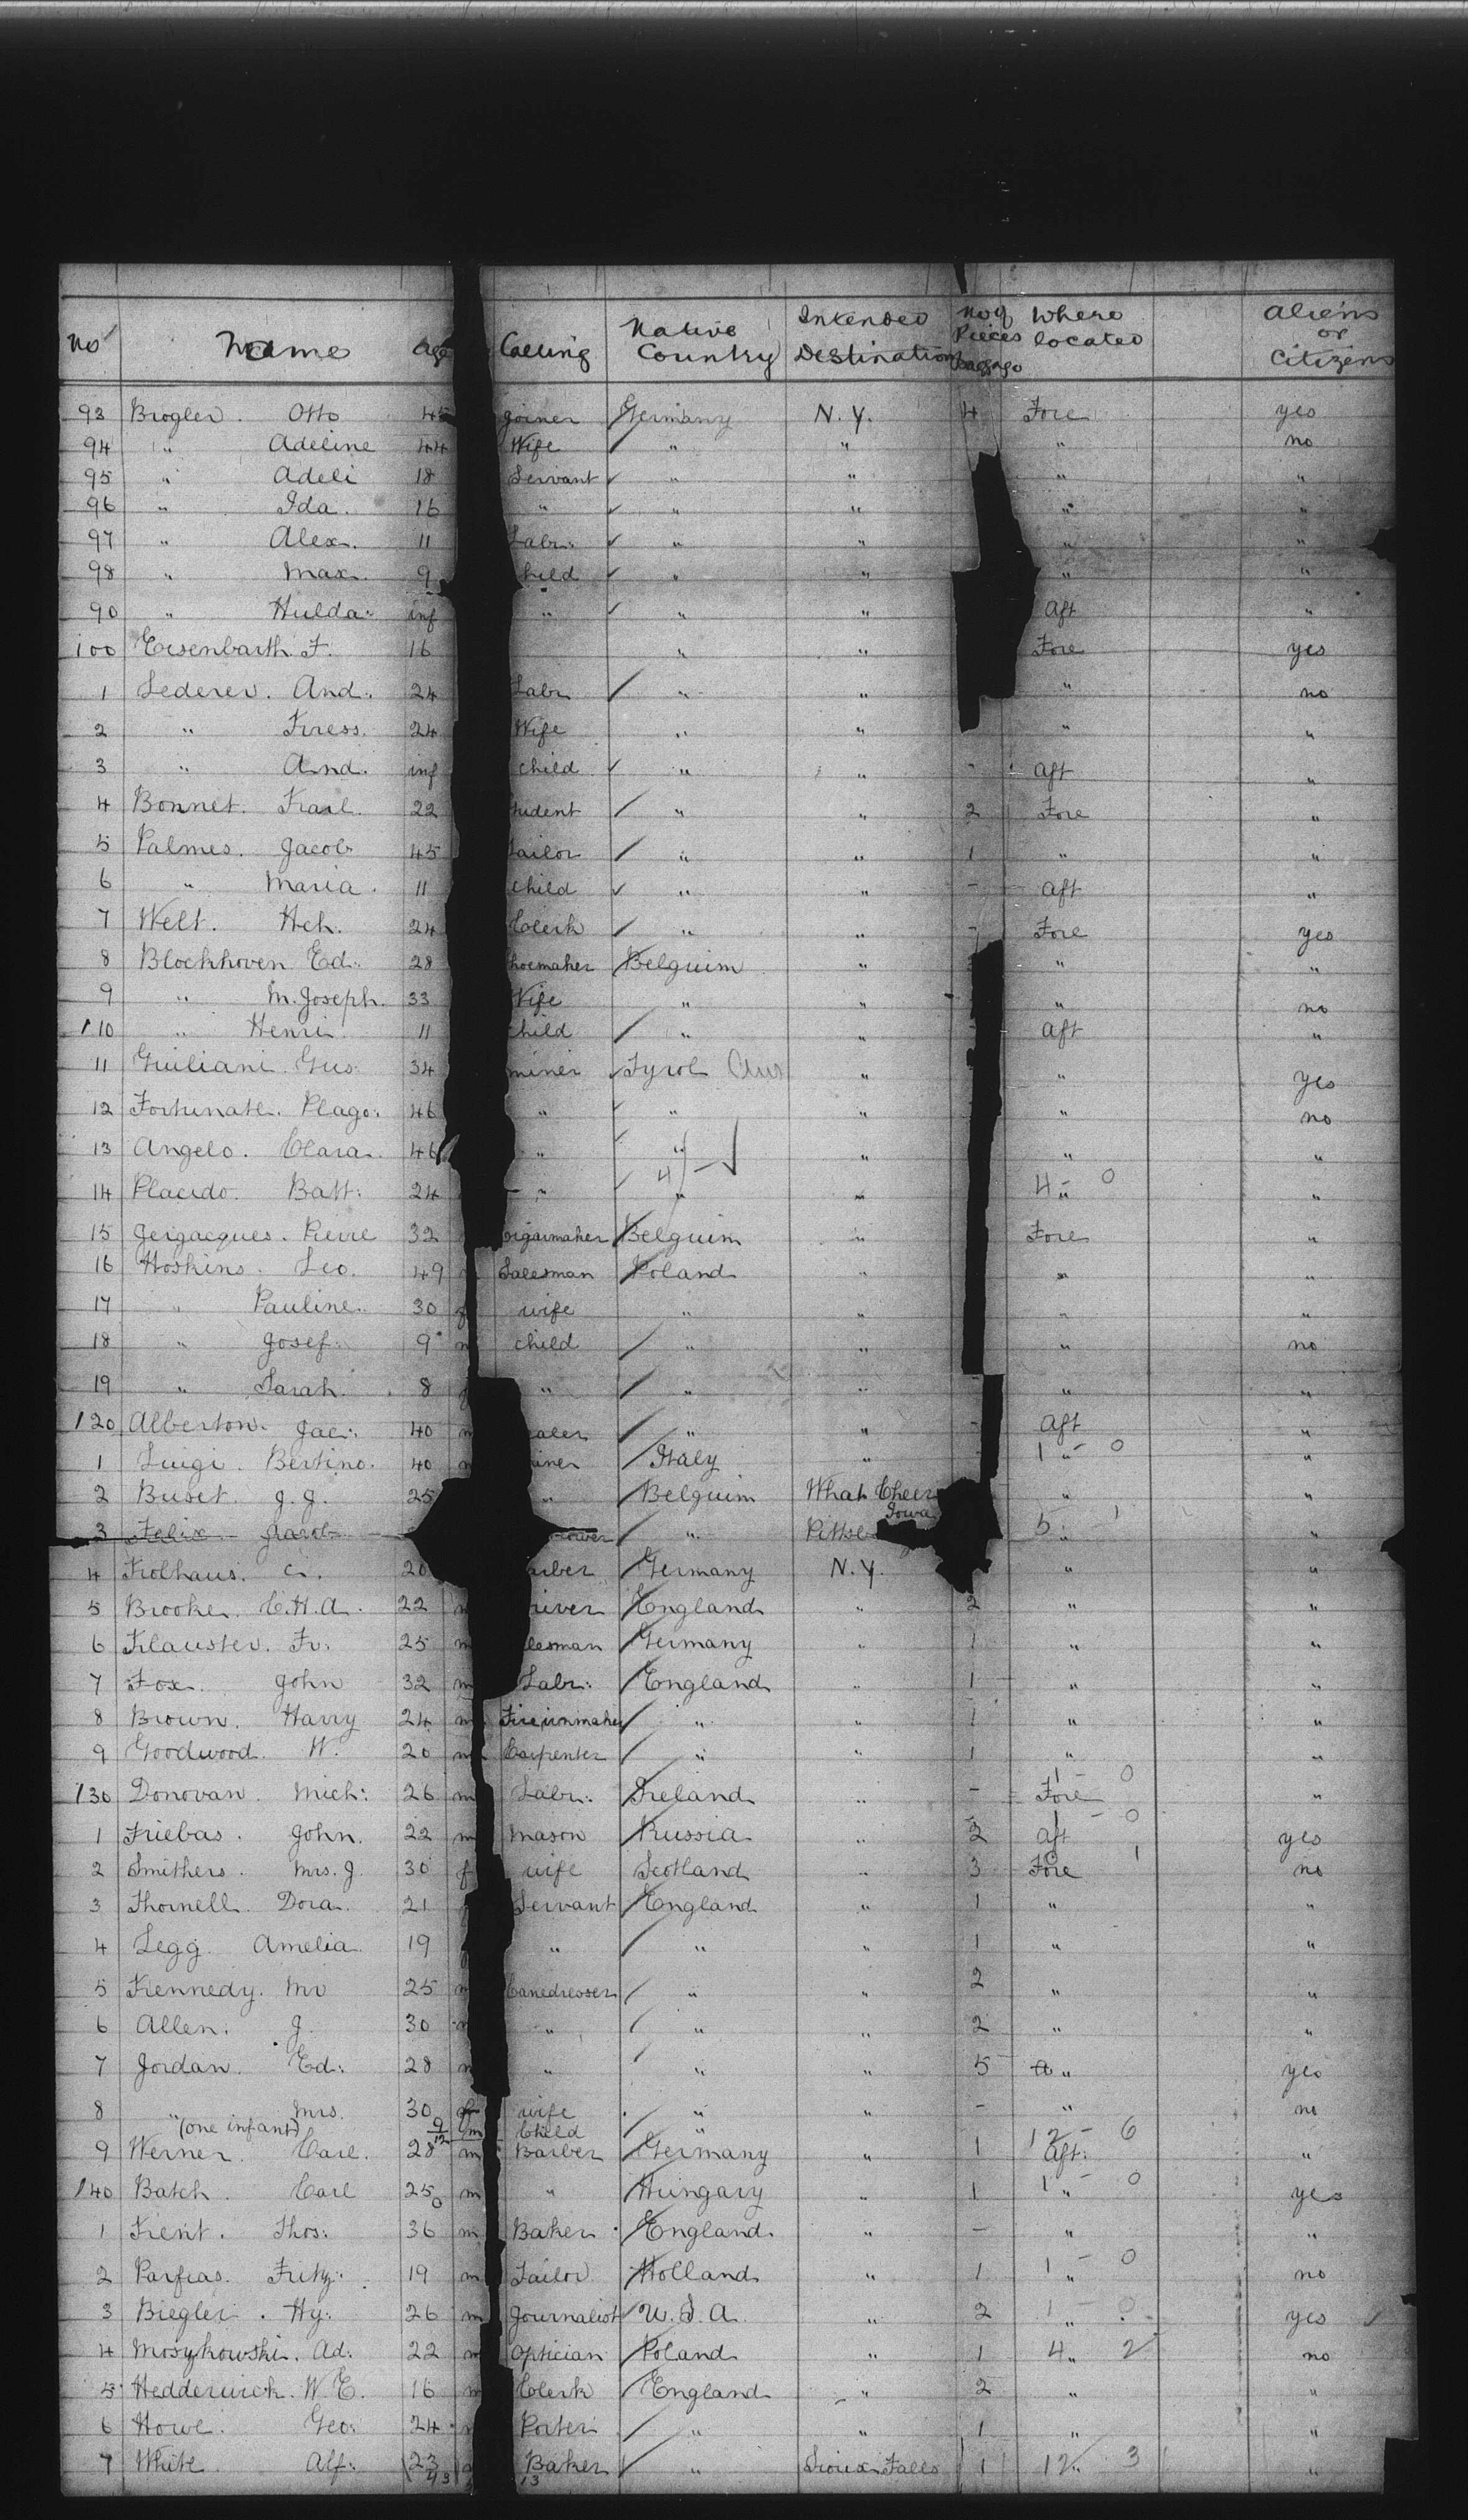 No Name Age Calling Native Country Intended Destination No of Pieces Baggage Where located Aliens or Citizens
93 Brogler. Otto 45 Joiner Germany N.Y. 4 Fore yes
94 " Adeline 44 Wife " " " no
95 " Adeli 18 Servant " " " "
96 " Ida. 16 " " " " "
97 " Alex. 11 Labr: " " " "
98 " Max. 9 hild " " " "
90 " Hulda: inf " " " Aft "
100 Eisenbarth. F. 16 " " Fore yes
1 Lederer. And: 24 Labr " " " no
2 " Kress. 24 Wife " " " "
3 " And. inf child " " - Aft "
4 Bonnet. Karl. 22 tudent " " 2 Fore "
5 Palmes. Jacob 45 ailor " " 1 " "
6 " Maria. 11 child " " - Aft "
7 Welt. Hch. 24 Clerk " " - Fore yes
8 Blockhoven Ed: 28 hoemaker Belguim " " "
9 " M. Joseph. 33 Wife " " " no
110 " Henri 11 child " " Aft "
11 Guiliani. Gus. 34 miner Tyrol Aus " " yes
12 Fortunate. Plago: 46 " " " " no
13 Angelo. Clara. 46 " " " " "
14 Placido. Batt: 24 " 4 " " 4 - " 0 "
15 Jeigacques. Pierre 32 cigarmaker Belguim " Fore "
16 Hoskins. Leo. 49 Salesman Poland " " "
17 " Pauline. 30 f wife " " " "
18 " Josef. 9 m child " " " no
19 " Sarah. 8 f " " " " "
120 Alberton. Jac: 40 m aler " " - Aft "
1 Luigi. Bertino. 40 m iner Italy " 1 - " 0 "
2 Buset. J.J. 25 " Belguim What Cheer Iowa " "
3 Felix Jacob ower " Pittsb 5 " - 1 "
4 Kolhaus. C. 20 arber Germany N.Y. " "
5 Brooke. C.H.A. 22 m river England " 2 " "
6 Klauster. Fr: 25 m lesman Germany " 1 " "
7 Fox. John 32 m Labr: England " 1 " "
8 Brown. Harry 24 m Fireironmaker " " 1 " "
9 Goodwood. W. 20 m Carpenter " " 1 " "
130 Donovan. Mich: 26 m Labr: Ireland " - 1 - 0 Fore "
1 Friebas. John. 22 m Mason Russia " 2 1 - 0 Aft yes
2 Smithers. Mrs. J. 30 f wife Scotland " 3 Fore 1 no
3 Thornell. Dora. 21 f Servant England " 1 " "
4 Legg. Amelia. 19 " " " 1 " "
5 Kennedy. Mr 25 m Canedresser " " 2 " "
6 Allen. J. 30 m " " " 2 " "
7 Jordan. Ed: 28 m " " " 5 " yes
8 " Mrs. 30 f wife " " - " no
(one infant) 9/12 m Child "
9 Werner. Carl. 28 m Barber Germany " 1 12 - 6 Aft: "
140 Batch. Carl 25 m " Hungary " 1 1 - " 0 yes
1 Kent. Thos: 36 m Baker England " - " "
2 Parfras. Fritz: 19 m Tailor Holland " 1 1 - " 0 no
3 Biegler. Hy: 26 m Journalist U.S.A. " 2 1 - " 0 yes
4 Mosykowski. Ad: 22 m Optician Poland " 1 4 " 2 no
5 Hedderwick. W.E. 16 m Clerk England " 2 " "
6 Howe. Geo: 24 Porter " " 1 " "
7 White. Alf: 23 Baker " Sioux Falls 1 12 " 3 "
43 13